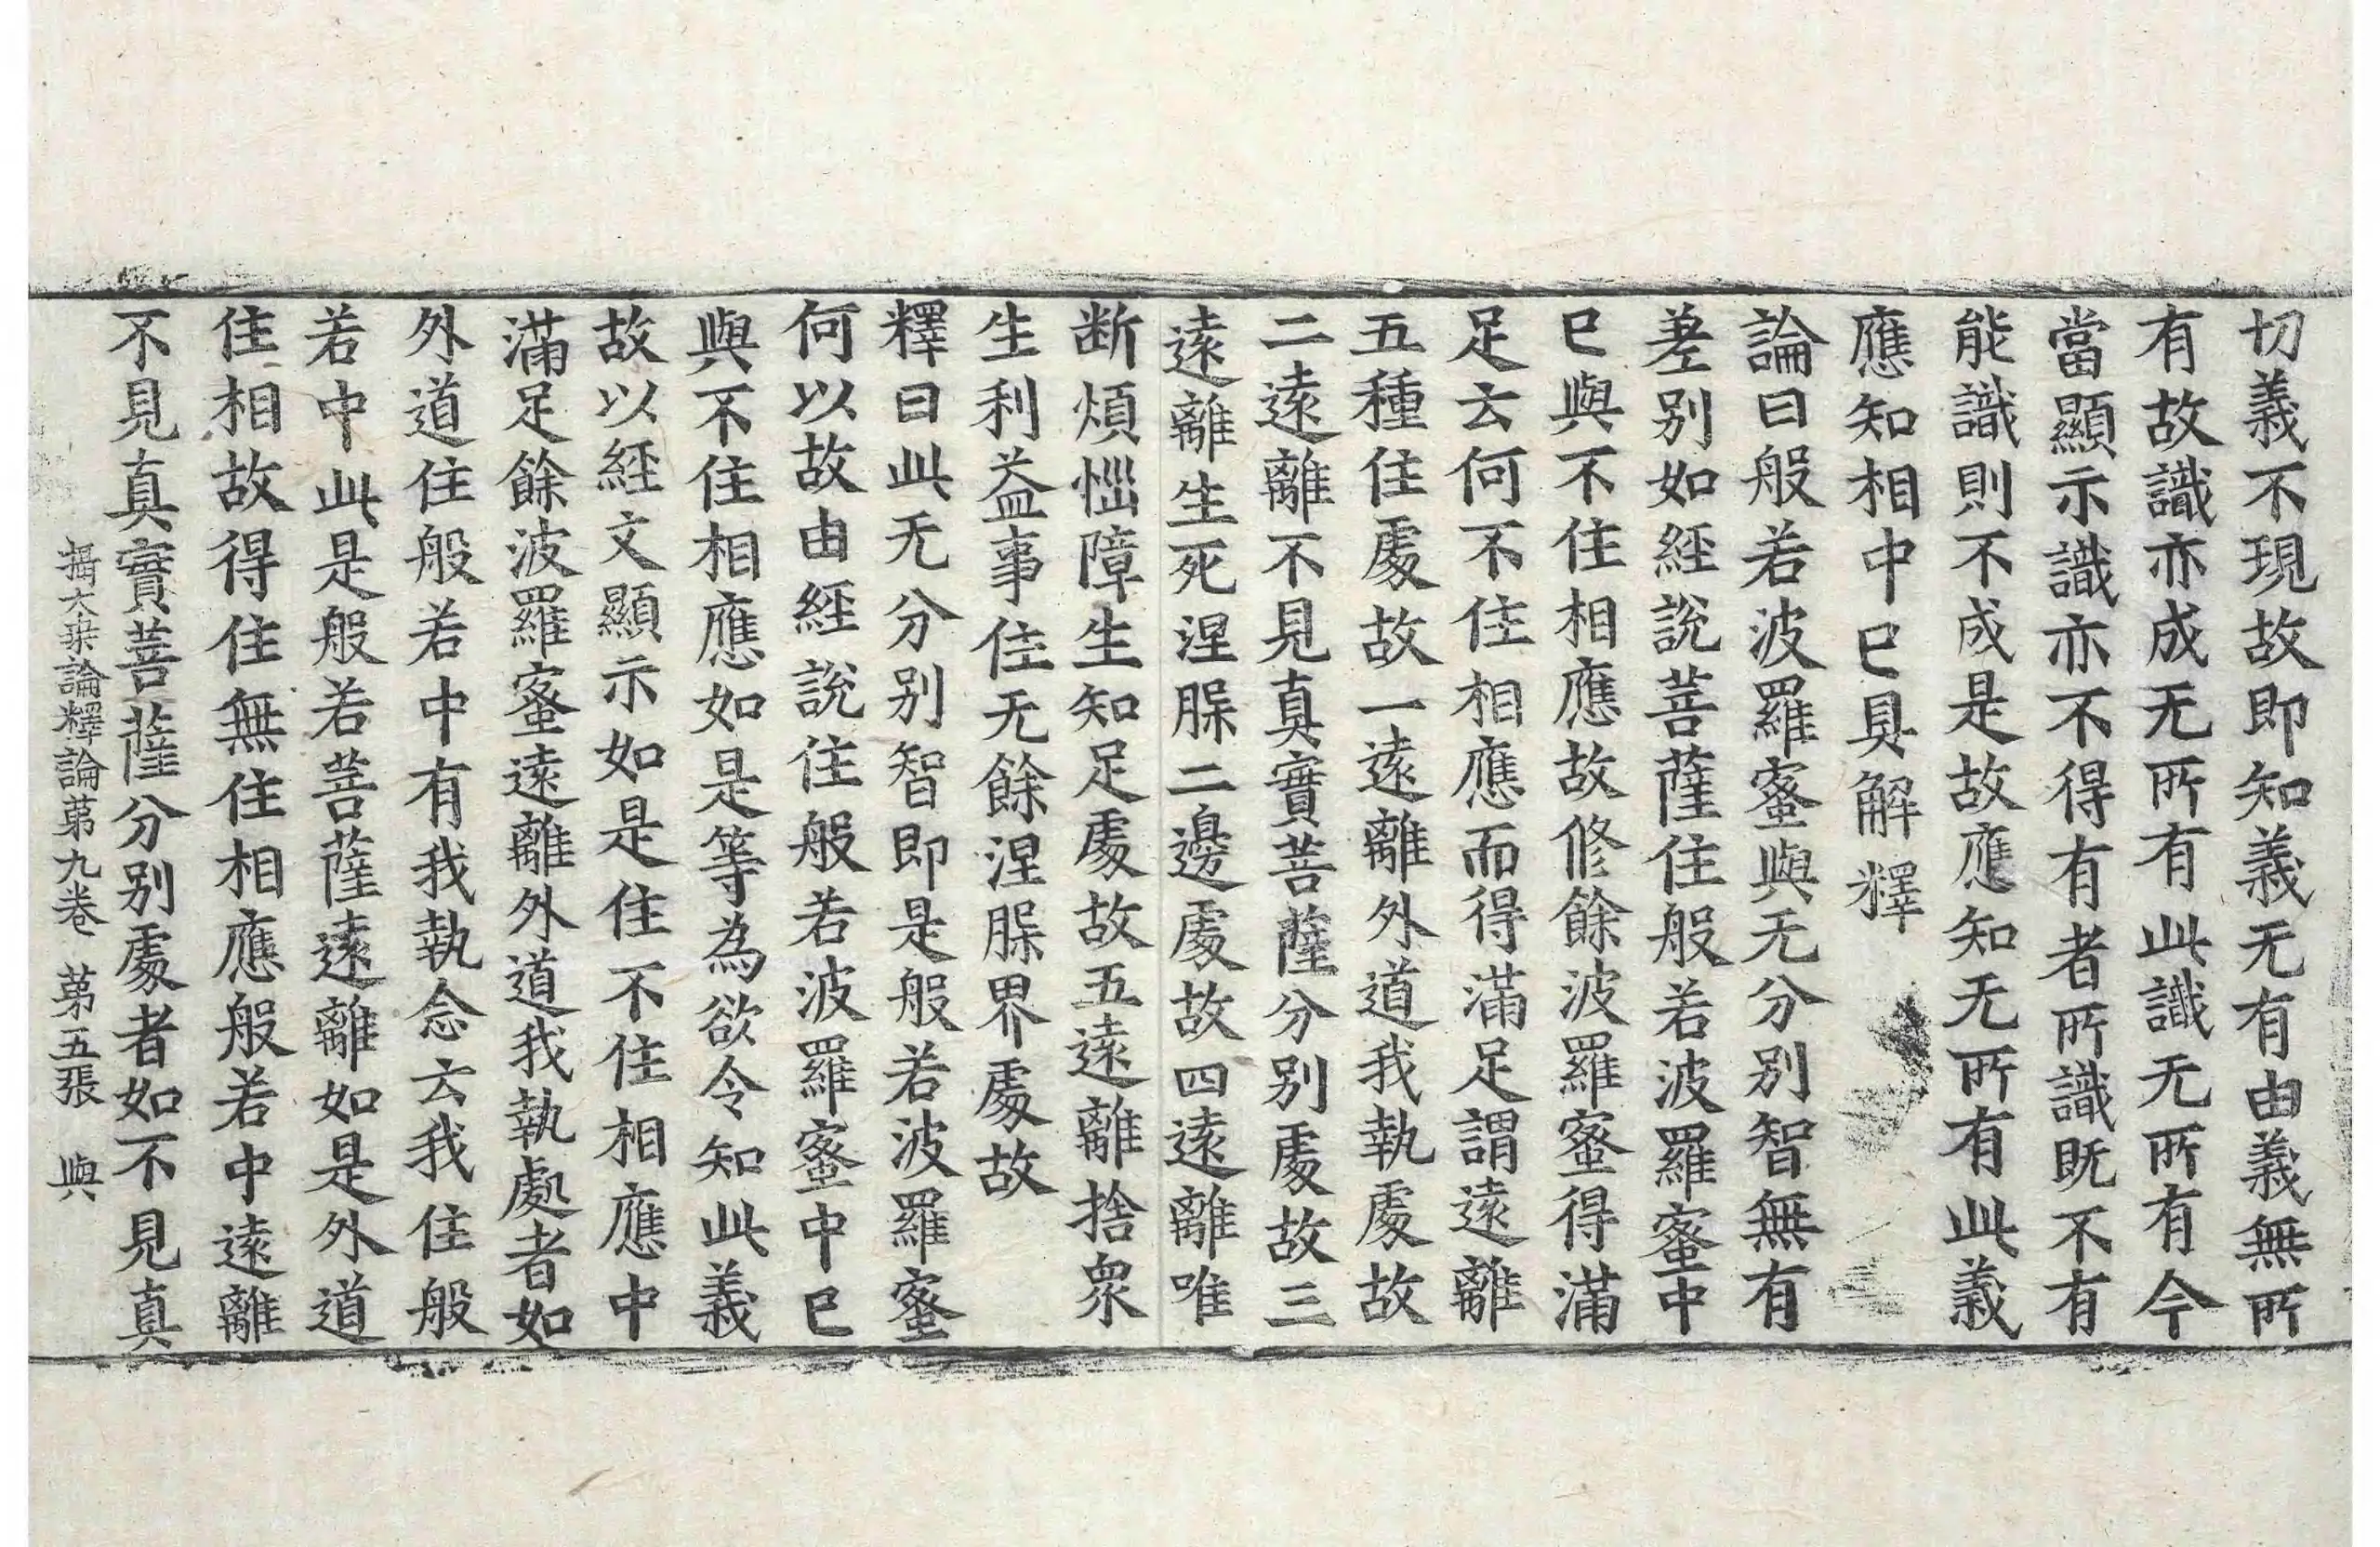 切義不現故即知義无有由義無所
有故識亦成无所有此識无所有今
當顯示識亦不得有者所識既不有
能識則不成是故應知无所有此義
應知相中已具解釋
論曰般若波羅蜜與无分別智無有
差別如經說菩薩住般若波羅蜜中
已與不住相應故修餘波羅蜜得滿
足云何不住相應而得滿足謂遠離
五種住處故一遠離外道我執處故
二遠離不見真實菩薩分別處故三
遠離生死涅脲二邊處故四遠離唯
断煩惱障生知足處故五遠離捨衆
生利益事住无餘涅脲界處故
釋曰此无分別智即是般若波羅蜜
何以故由經說住般若波羅蜜中已
與不住相應如是等為欲令知此義
故以經文顯示如是住不住相應中
滿足餘波羅蜜遠離外道我執處者如
外道住般若中有我執念云我住般
若中此是般若菩薩遠離如是外道
住相故得住無住相應般若中遠離
不見真實菩薩分別處者如不見真
攝大乗論釋論第九卷 第五張 與